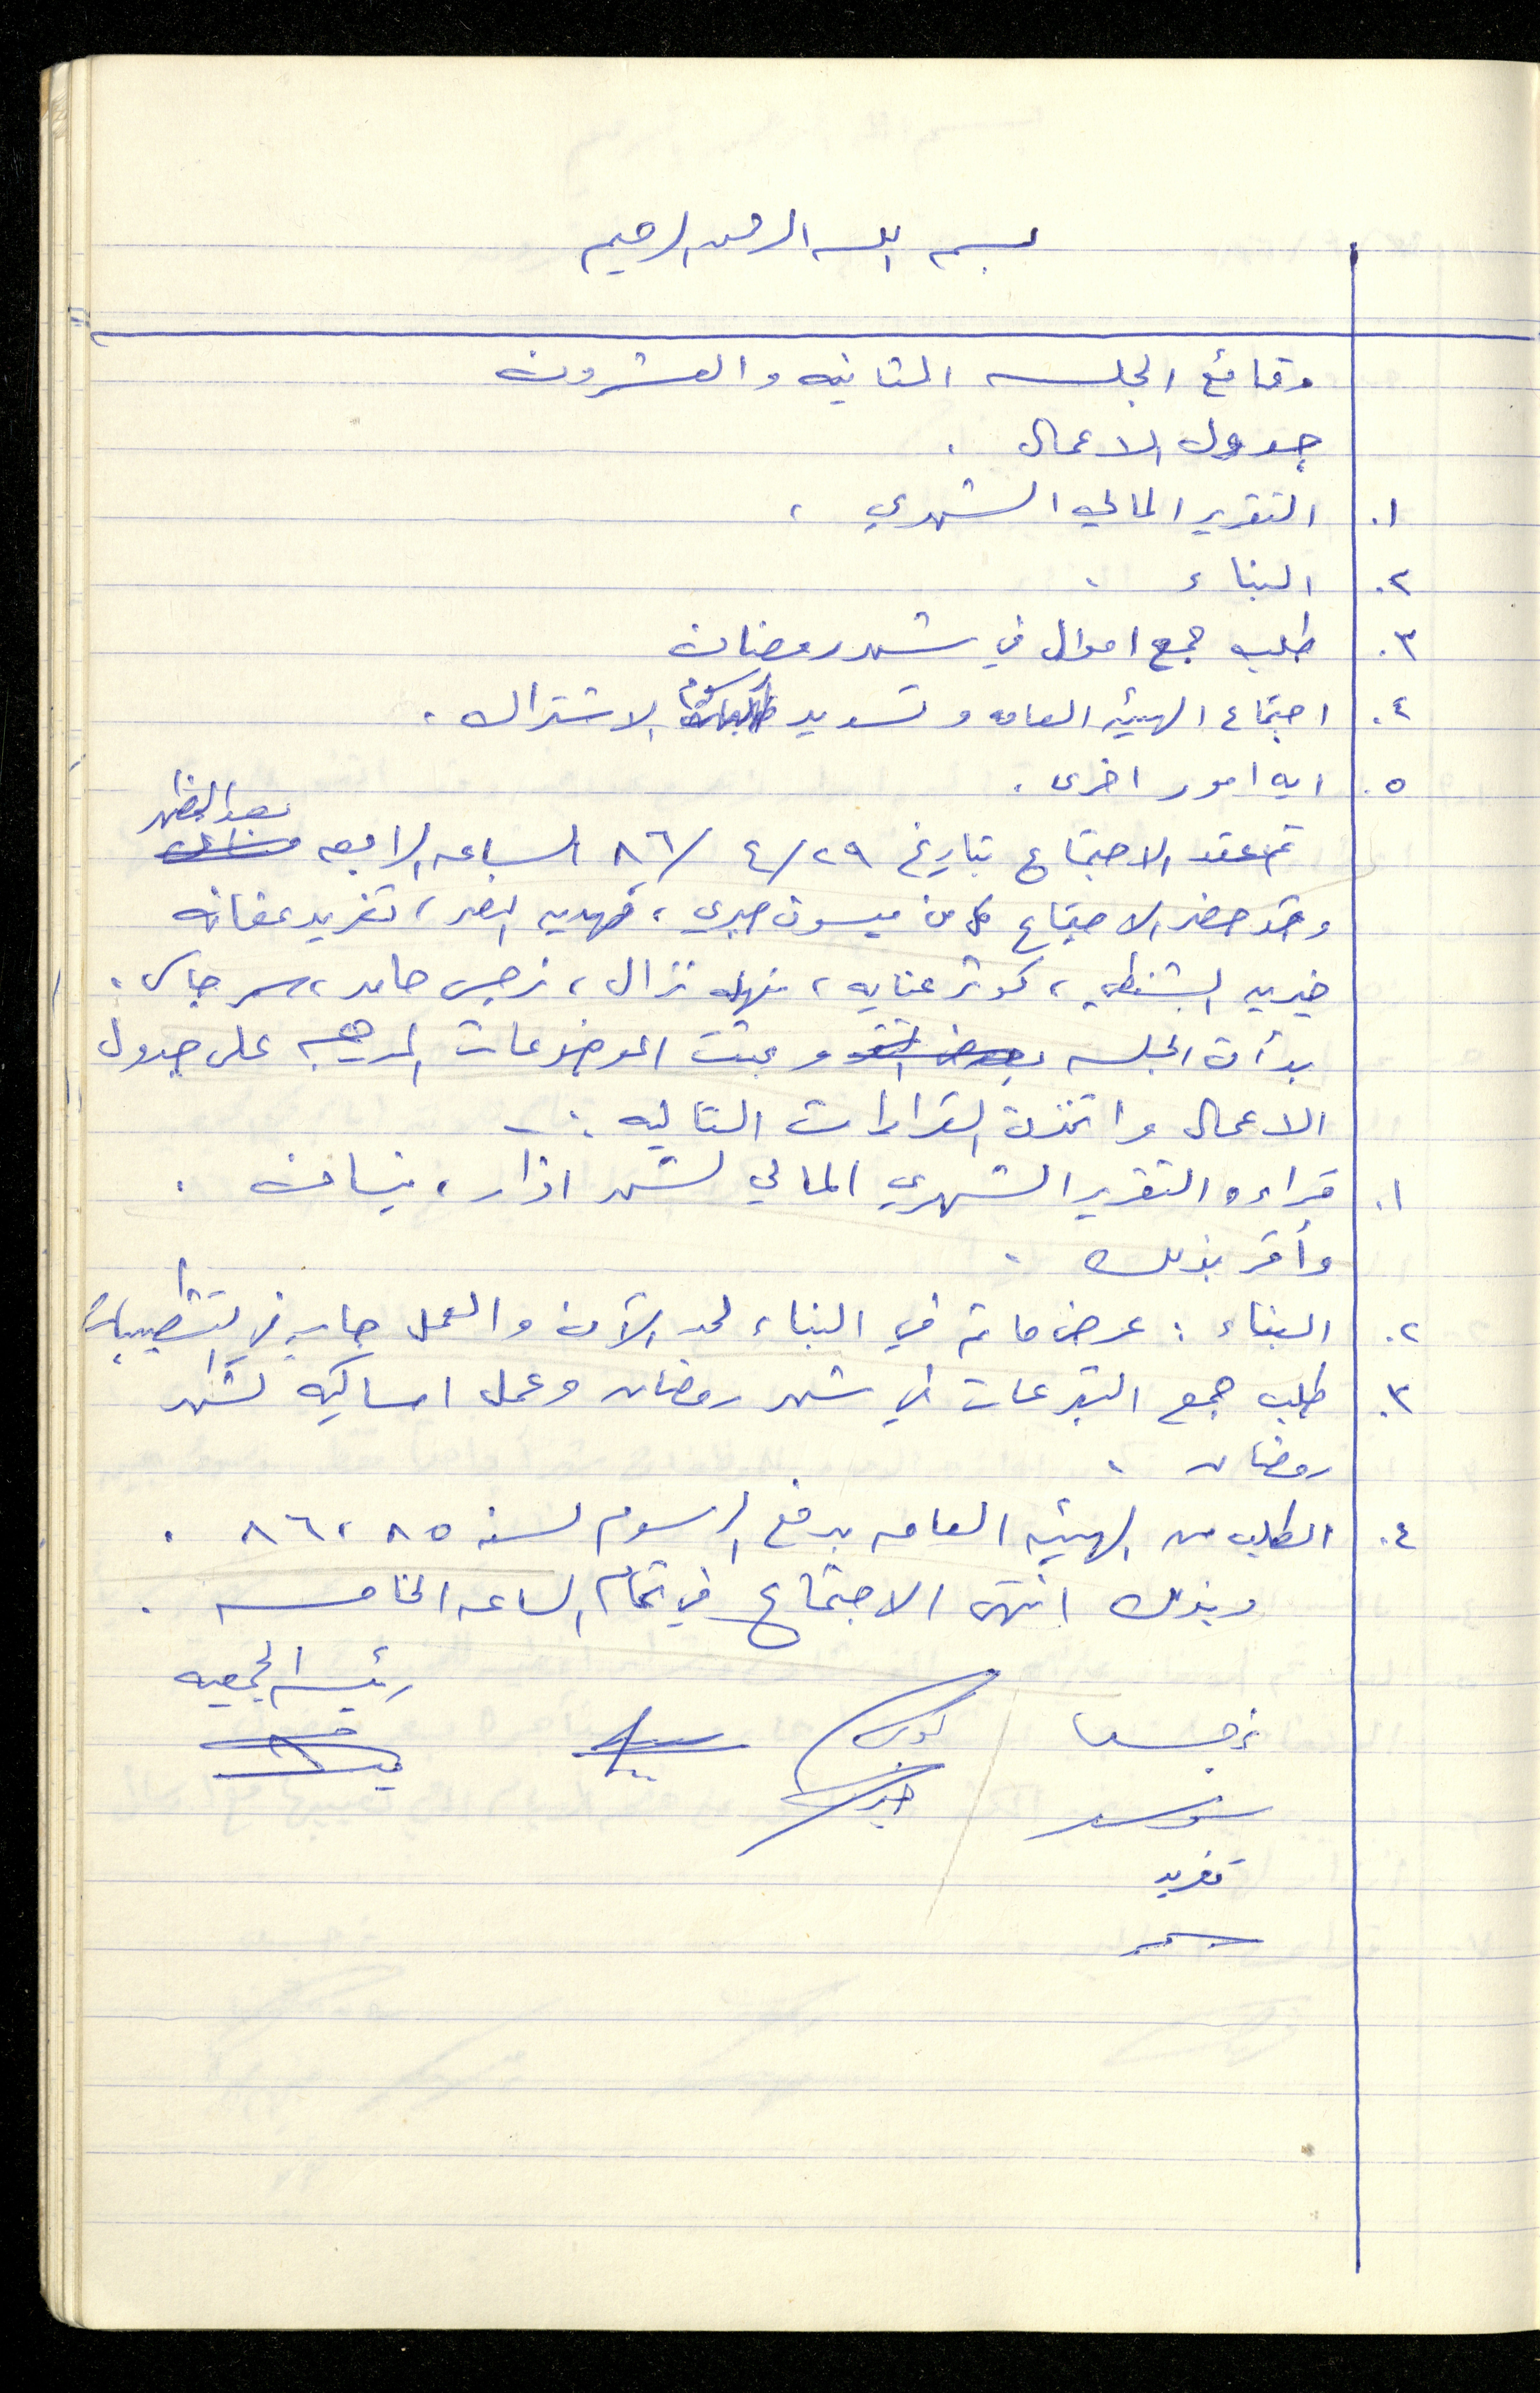 بسم الله الرحمن الرحيم
وقائع الجلسه الثانيه والعشرون
جدول الاعمال .
١. التقرير المالي الشهري .
٢. البناء .
٣. طلب جمع اموال في شهر رمضان
٤. اجتماع الهيئه العامه وتسديد رسوم الاشتراك .
٥. ايه امور اخرى .
تم عقد الاجتماع بتاريخ ٢٩/٤/٨٦ الساعه الرابعه بعد الظهر
وقد حضر الاجتماع كل من ميسون صبري ، فهديه النصر ، تغريد عفانه
خيريه الشنطي ، كوثر عنايه ، منهله نزال ، نرجس حامد ، سمر جابر .
بدأت الجلسه وبحثت الموضوعات المدرجه على جدول
الاعمال واتخذت القرارات التاليه :-
١. قراءه التقرير الشهري المالي لشهر اذار ، نيسان .
وأقر بذلك .
٢. البناء : عرض ما تم في البناء لحد الآن والعمل جاري في التشطيبات
٣. طلب جمع التبرعات في شهر رمضان وعمل امساكيه لشهر
رمضان .
٤. الطلب من الهيئه العامه بدفع الرسوم لسنه ٨٥ ، ٨٦ .
وبذلك انتهى الاجتماع في تمام الساعه الخامسه .
رئيسه الجمعيه
نرجس
تغريد
سمر